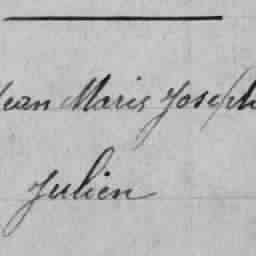 Jean Marie Joseph
Julien